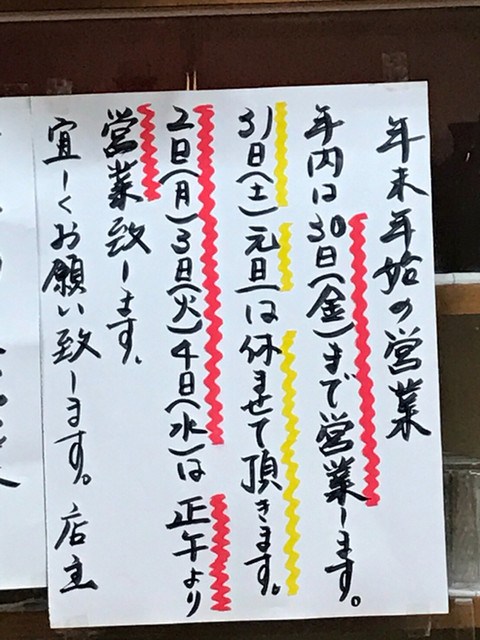 年末年始の営業
年内は30日(金)まで営業します。
31日(土)元旦は休ませて頂きます。
2日(月)3日(火)4日(水)は正午より
営業致します。
宜しくお願い致します。店主